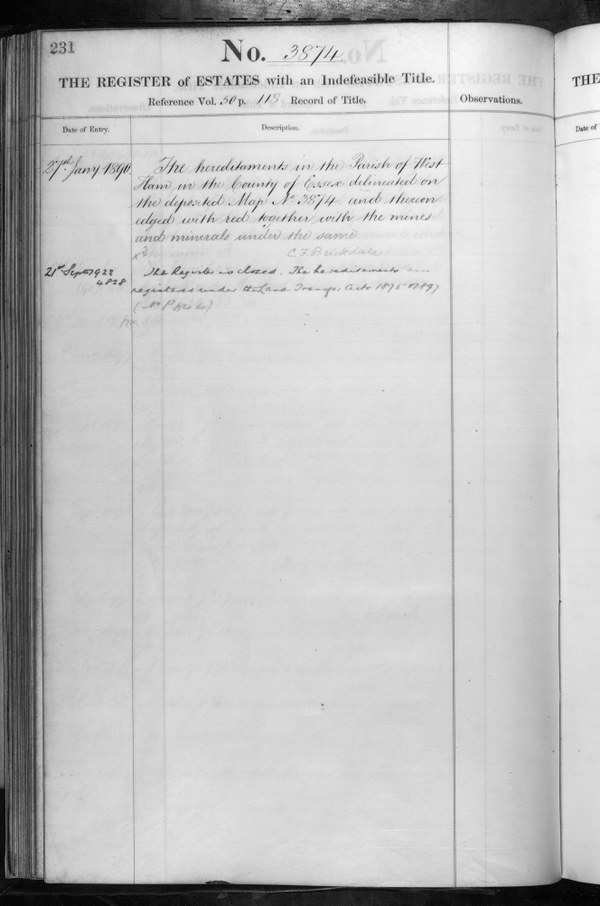 231
No. 3874
THE REGISTER of ESTATES with an Indefeasible Title.
Reference Vol. 50 p. 118 Record of Title.
Observations.
Date of Entry.
Description.
27th Jany 1890
The hereditaments in the Parish of West
Ham in the County of Essex delineated on
the deposited Map No. 3874 and thereon
edged with red together with the mines
and minerals under the same
C. F. Brickdale
21st Sept 1922
4828
The Register is closed. The hereditaments are
registered under the Land Transfer Acts 1875 & 1897
THE
Date of